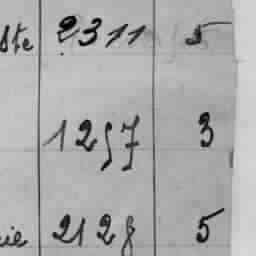 ste 2311 5
1257 3
cie 2128 5